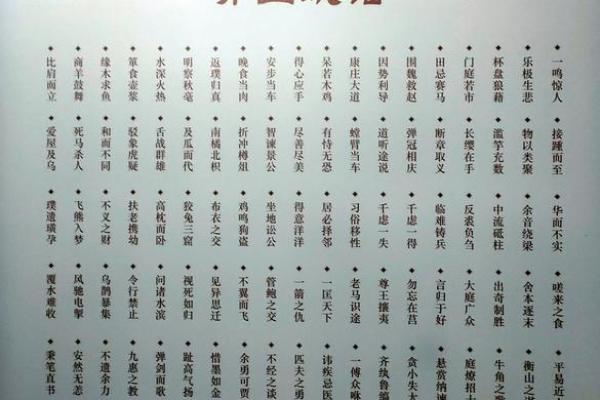 一鸣惊人 接踵而至 华而不实 嗟来之食 平易近
乐极生悲 物以类聚 余音绕梁 舍本逐末 衡山之
杯盘狼藉 滥竽充数 中流砥柱 出奇制胜 牛角之
门庭若市 长缨在手 反裘负刍 大庭广众 庭燎招士
田忌赛马 断章取义 临难铸兵 言归于好 悬赏纳谏
围魏救赵 弹冠相庆 千虑一得 勿忘在莒 贪小失大
因势利导 道听途说 千虑一失 尊王攘夷 齐纨鲁缟
康庄大道 螳臂当车 习俗移性 老马识途 一傅众咻
呆若木鸡 有恃无恐 居必择邻 一匡天下 讳疾忌医
得心应手 尽善尽美 得意洋洋 一箭之仇 匹夫之勇
安步当车 智谏景公 坐地讼公 管鲍之交 不经之谈
晚食当肉 折冲樽俎 鸡鸣狗盗 不翼而飞 余勇可贾
返璞归真 南橘北枳 布衣之交 见异思迁 惜墨如金
明察秋毫 及瓜而代 狡兔三窟 视死如归 趾高气扬
水深火热 舌战群雄 高枕而卧 问诸水滨 弹剑而歌
箪食壶浆 驳象虎疑 扶老携幼 令行禁止 九惠之教
缘木求鱼 和而不同 不义之财 乌鹊暴集 不遗余力
商羊鼓舞 死马杀人 飞熊入梦 风驰电掣 安然无恙
比肩而立 爱屋及乌 璞遗璜孕 覆水难收 秉笔直书